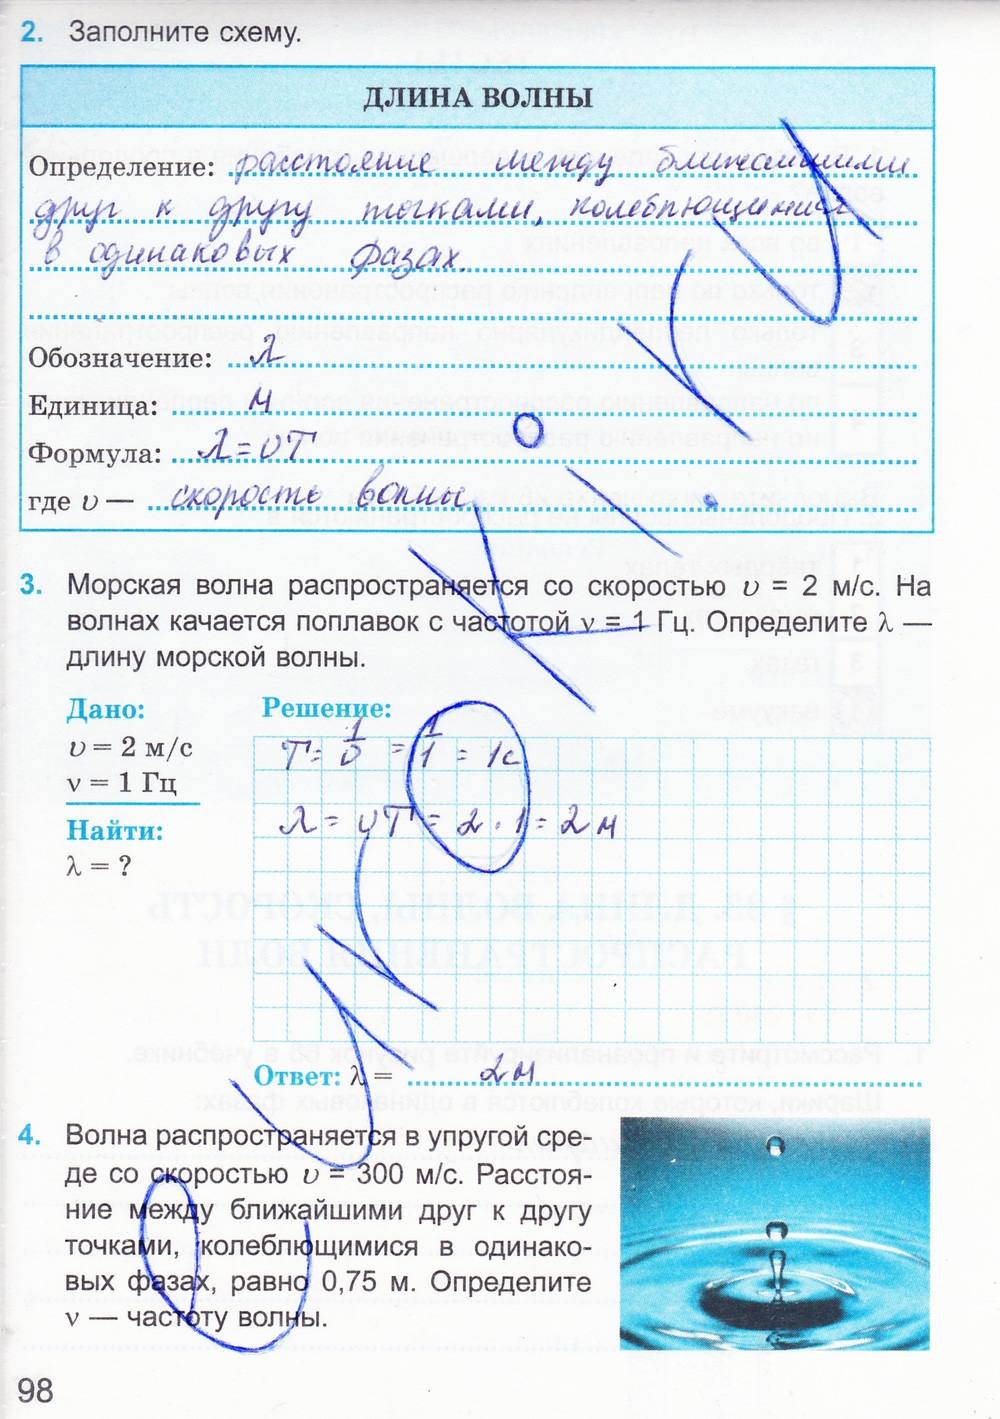 2. Заполните схему.
ДЛИНА ВОЛНЫ
Определение: расстояние между ближайшими
друг к другу точками, колеблющимися
в одинаковых фазах.
Обозначение: λ
Единица: м
Формула: λ = υT
где υ — скорость волны
3. Морская волна распространяется со скоростью υ = 2 м/с. На
волнах качается поплавок с частотой ν = 1 Гц. Определите λ —
длину морской волны.
Дано:
υ = 2 м/с
ν = 1 Гц
Найти:
λ = ?
Решение:
T = 1/υ = 1/1 = 1с
λ = υT = 2 · 1 = 2 м
Ответ: λ = 2 м
4. Волна распространяется в упругой сре-
де со скоростью υ = 300 м/с. Расстоя-
ние между ближайшими друг к другу
точками, колеблющимися в одинако-
вых фазах, равно 0,75 м. Определите
ν — частоту волны.
98